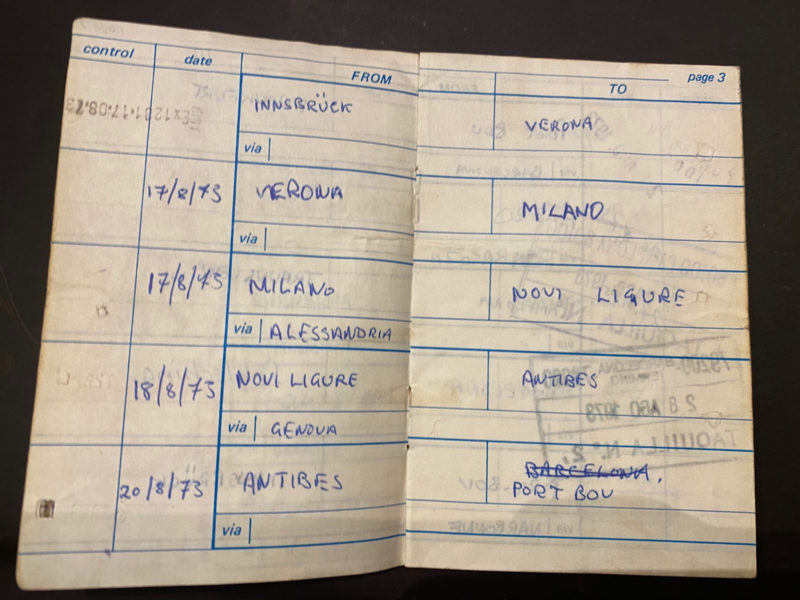 control date FROM TO page 3
INNSBRÜCK VERONA
via
17/8/73 VERONA MILANO
via
17/8/73 MILANO NOVI LIGURE
via ALESSANDRIA
18/8/73 NOVI LIGURE ANTIBES
via GENOVA
20/8/73 ANTIBES BARCELONA.
PORT BOU
via